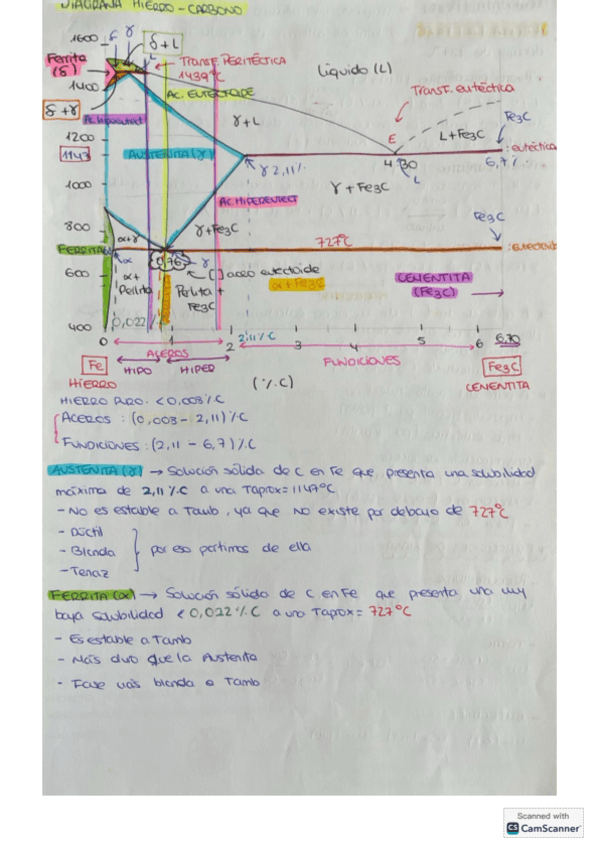 DIAGRAMA HIERRO-CARBONO
1600
δ γ
δ+L
Ferrita
(δ)
TRANSF. PERITÉCTICA
1439°C
Líquido (L)
1400
AC. EUTECTOIDE
TRANSF. eutéctica
δ+γ
γ+L
Fe3C
1200
E
L+Fe3C
: eutéctica
1143
AUSTENITA (γ)
4'30
6,7%
γ 2,11%
L
1000
γ+Fe3C
AC. HIPEREUTECT
800
γ+Fe3C
Fe3C
α+γ
727°C
FERRITA
α
0,76
γ
[ ] acero eutectoide
600
α+
Perlita
Perlita +
Fe3C
α+Fe3C
CEMENTITA
(Fe3C)
400
0,022
0
1
2
2,11%C
3
4
5
6
6,70
ACEROS
FUNDICIONES
Fe
HIPO
HIPER
Fe3C
HIERRO
(%.C)
CEMENTITA
HIERRO PURO: <0,003%C
ACEROS : (0,003 - 2,11)%C
FUNDICIONES: (2,11 - 6,7)%C
AUSTENITA (γ) → Solución sólida de C en Fe que presenta una solubilidad
máxima de 2,11%C a una Taprox=1147°C
- No es estable a Tamb, ya que no existe por debajo de 727°C
- Dúctil
- Blanda
por eso partimos de ella
- Tenaz
FERRITA (α) → Solución sólida de C en Fe que presenta una muy
baja solubilidad < 0,022%C a una Taprox = 727°C
- Es estable a Tamb
- Más duro que la Austenita
- Fase más blanda a Tamb
Scanned with
CS CamScanner